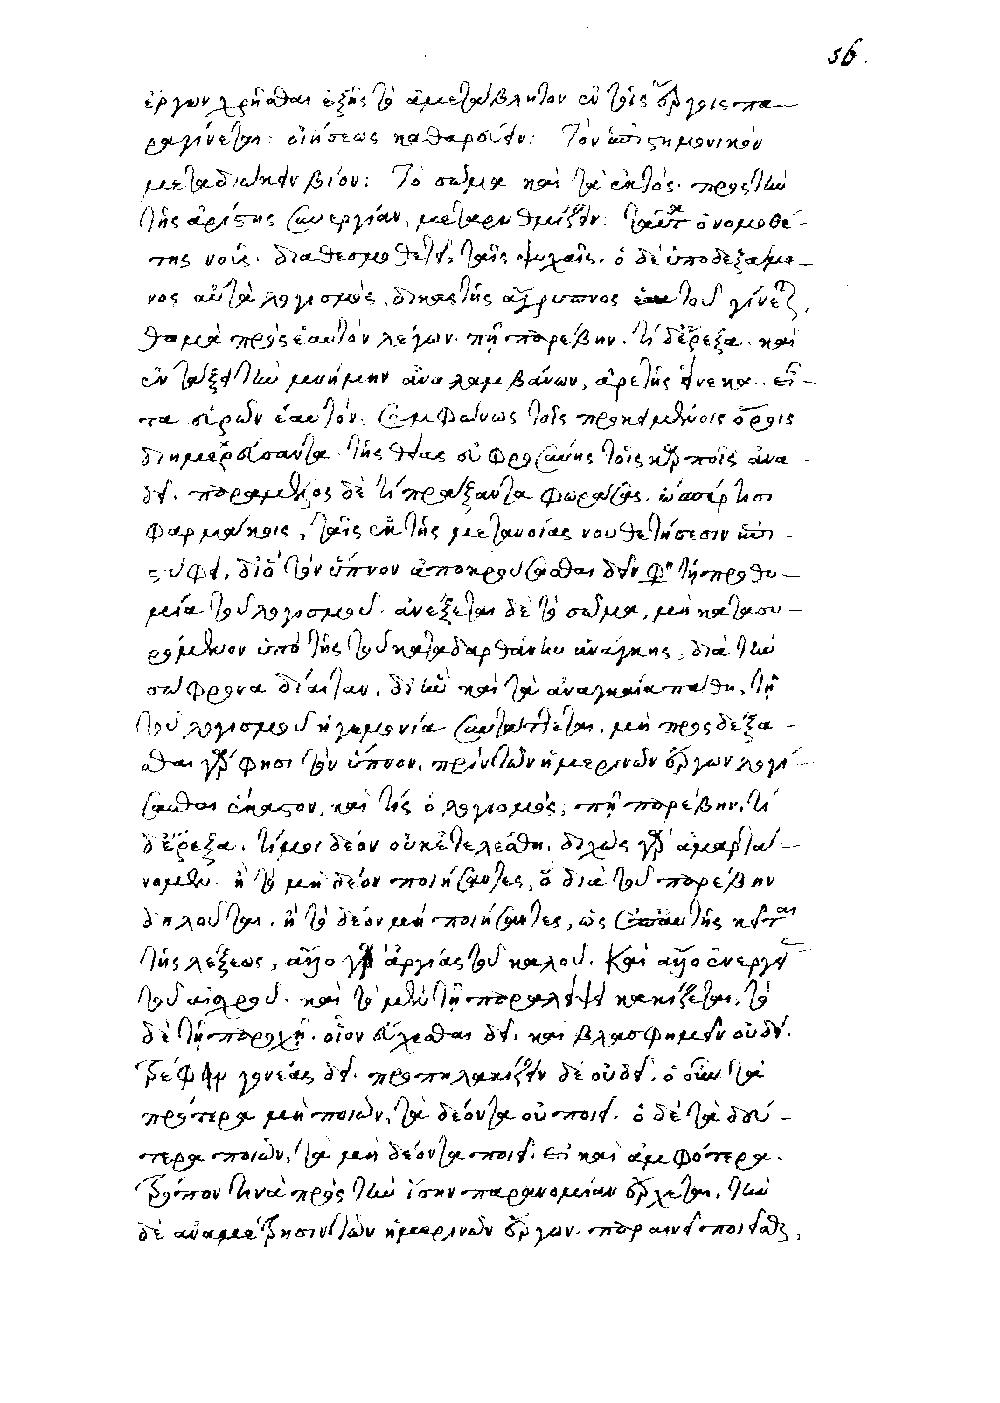 56.
ἔργων χρῆσθαι ἐξῆς τὸ ἀμετάβλητον ἐν τοῖς ἔργοις πα—
ραγίνεται· οἰήσεως καθαρεύειν: Τὸν ἐπιστημονικὸν
μεταδιώκειν βίον: Τὸ σῶμα καὶ τὰ ἐκτὸς πρὸς τὴν
τῆς ἀρετῆς συνεργίαν, μεταρυθμίζειν: ταῦτα ὁ νομοθέ-
της νοῦς διαθεσμοθετεῖ ταῖς ψυχαῖς. ὁ δὲ ὑποδεξάμε—
νος αὐτὰ λογισμὸς, δικαστὴς ἄγρυπνος ἑαυτοῦ γίνεται,
θαμὰ πρὸς ἑαυτὸν λέγων. πῆ παρέβην. τί δ' ἔρεξα. καὶ
ἐν τάξει τὴν μνήμην ἀναλαμβάνων, ἀρετῆς ἕνεκα. εἶ—
τα εὑρὼν ἑαυτὸν, συμφώνως τοῖς προκειμένοις ὅροις
διημερεύσαντα τῆς θείας εὐφροσύνης τοῖς καρποῖς ἀνα-
δεῖ. παραμελῶς δέ τι πράξαντα φωράσας, ὥσπερ τισὶ
φαρμάκοις, ταῖς ἐκ τῆς μετανοίας νουθετήσεσιν ἐπι-
στύφει, διὸ τὸν ὕπνον ἀποκρούσασθαι δεῖν φησι τῇ προθυ—
μίᾳ τοῦ λογισμοῦ. ἀνέξεται δὲ τὸ σῶμα, μὴ κατασυ—
ρόμενον ὑπὸ τῆς τοῦ καταδαρθάνειν ἀνάγκης, διὰ τὴν
σώφρονα δίαιταν, δι' ἣν καὶ τὰ ἀναγκαῖα πάθη, τῇ
τοῦ λογισμοῦ ἡγεμονίᾳ συντάττεται. μὴ προσδέξα-
σθαι γάρ φησι τὸν ὕπνον, πρὶν τῶν ἡμερινῶν ἔργων λογί-
σασθαι ἕκαστον, καὶ τίς ὁ λογισμὸς, πῆ παρέβην, τί
δ' ἔρεξα. τί μοι δέον οὐκ ἐτελέσθη. διχῶς γὰρ ἁμαρτά—
νομεν. ἢ τὸ μὴ δέον ποιήσαντες, ὃ διὰ τοῦ παρέβην
δηλοῦται. ἢ τὸ δέον μὴ ποιήσαντες, ὡς ἐπ' αὐτῆς κεῖται
τῆς λέξεως, ἄλλο γὰρ ἀργία τοῦ καλοῦ. Καὶ ἄλλο ἐνεργεῖ
τοῦ αἰσχροῦ. καὶ τὸ μὲν τῇ παραλείψει κακίζεται, τὸ
δὲ τῇ παροχῇ. οἷον εὔχεσθαι δεῖ. καὶ βλασφημεῖν οὐ δεῖ.
τρέφειν γονέας δεῖ. προπηλακίζειν δὲ οὐ δεῖ. ὁ οὖν τὰ
πρότερα μὴ ποιῶν, τὰ δέοντα οὐ ποιεῖ. ὁ δὲ τὰ δεύ-
τερα ποιῶν, τὰ μὴ δέοντα ποιεῖ. εἰ καὶ ἀμφότερα
τρόπον τινὰ πρὸς τὴν ἴσην παρανομίαν ἔρχεται, τὴν
δὲ ἀναμέτρησιν τῶν ἡμερινῶν ἔργων παραινεῖ ποιεῖσθαι,